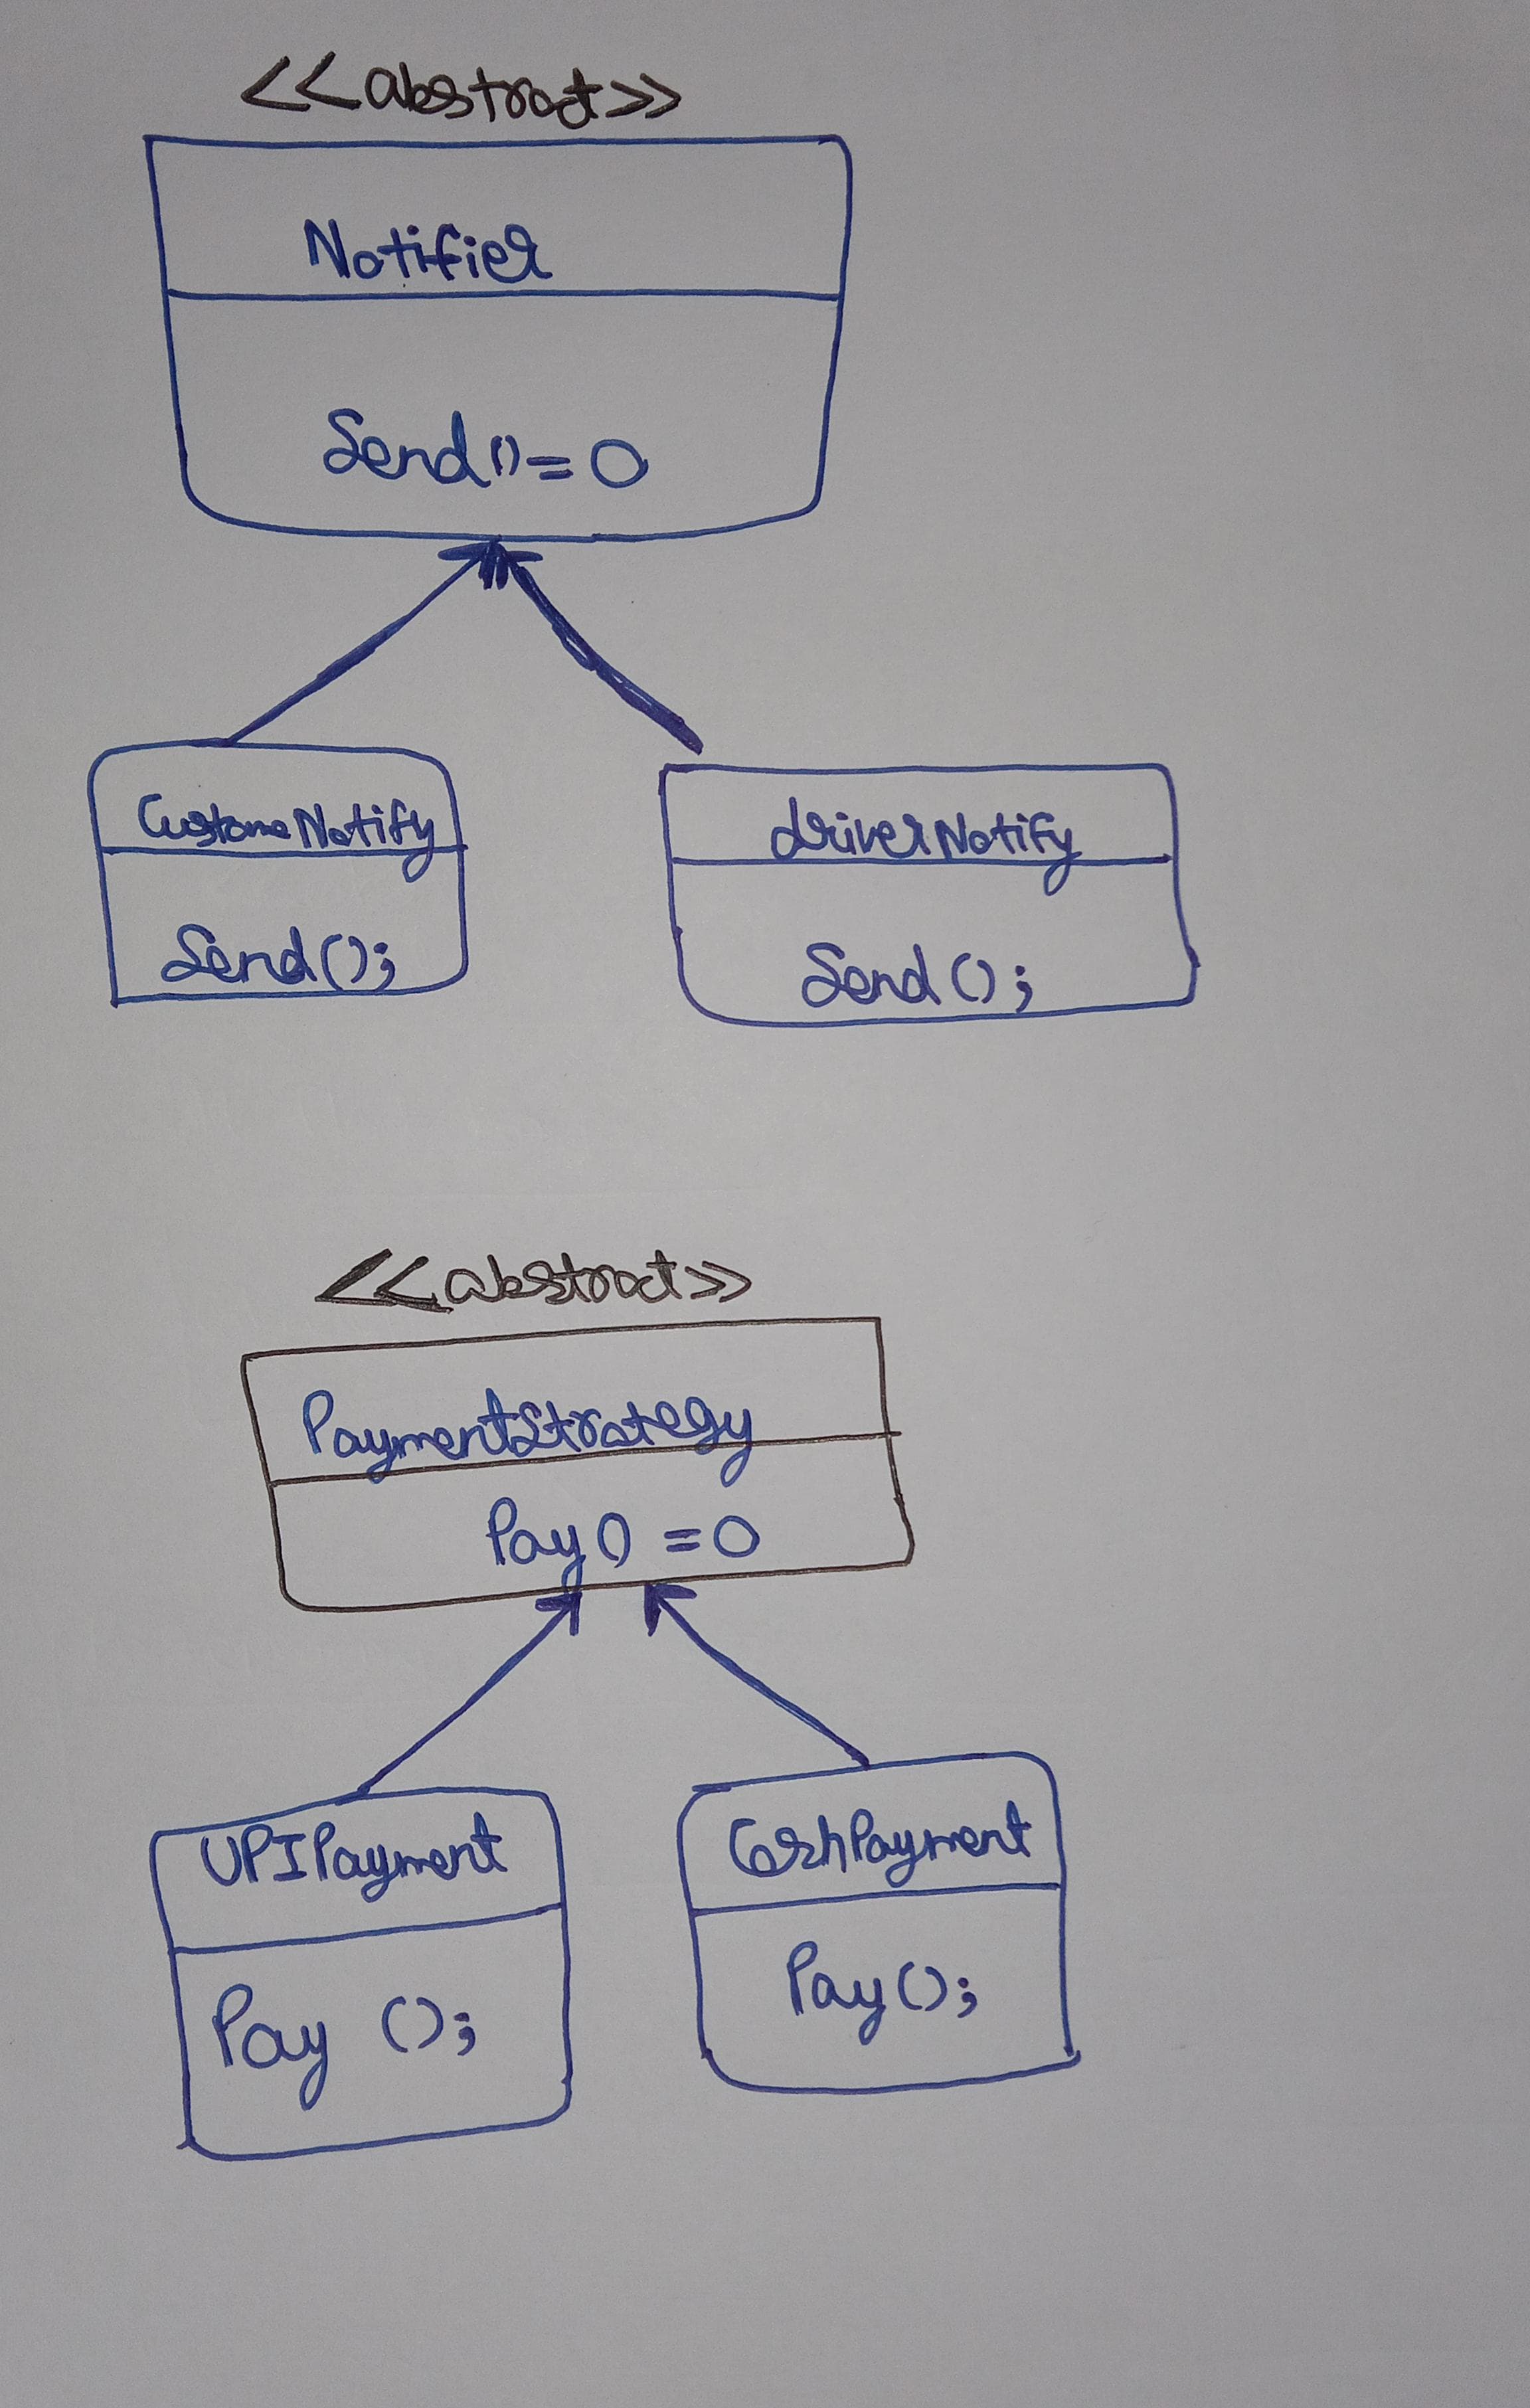 <<abstract>>
Notifier
Send()=0
CustomeNotify
driverNotify
Send();
Send();
<<abstract>>
PaymentStrategy
Pay()=0
UPIPayment
CashPayment
Pay();
Pay();